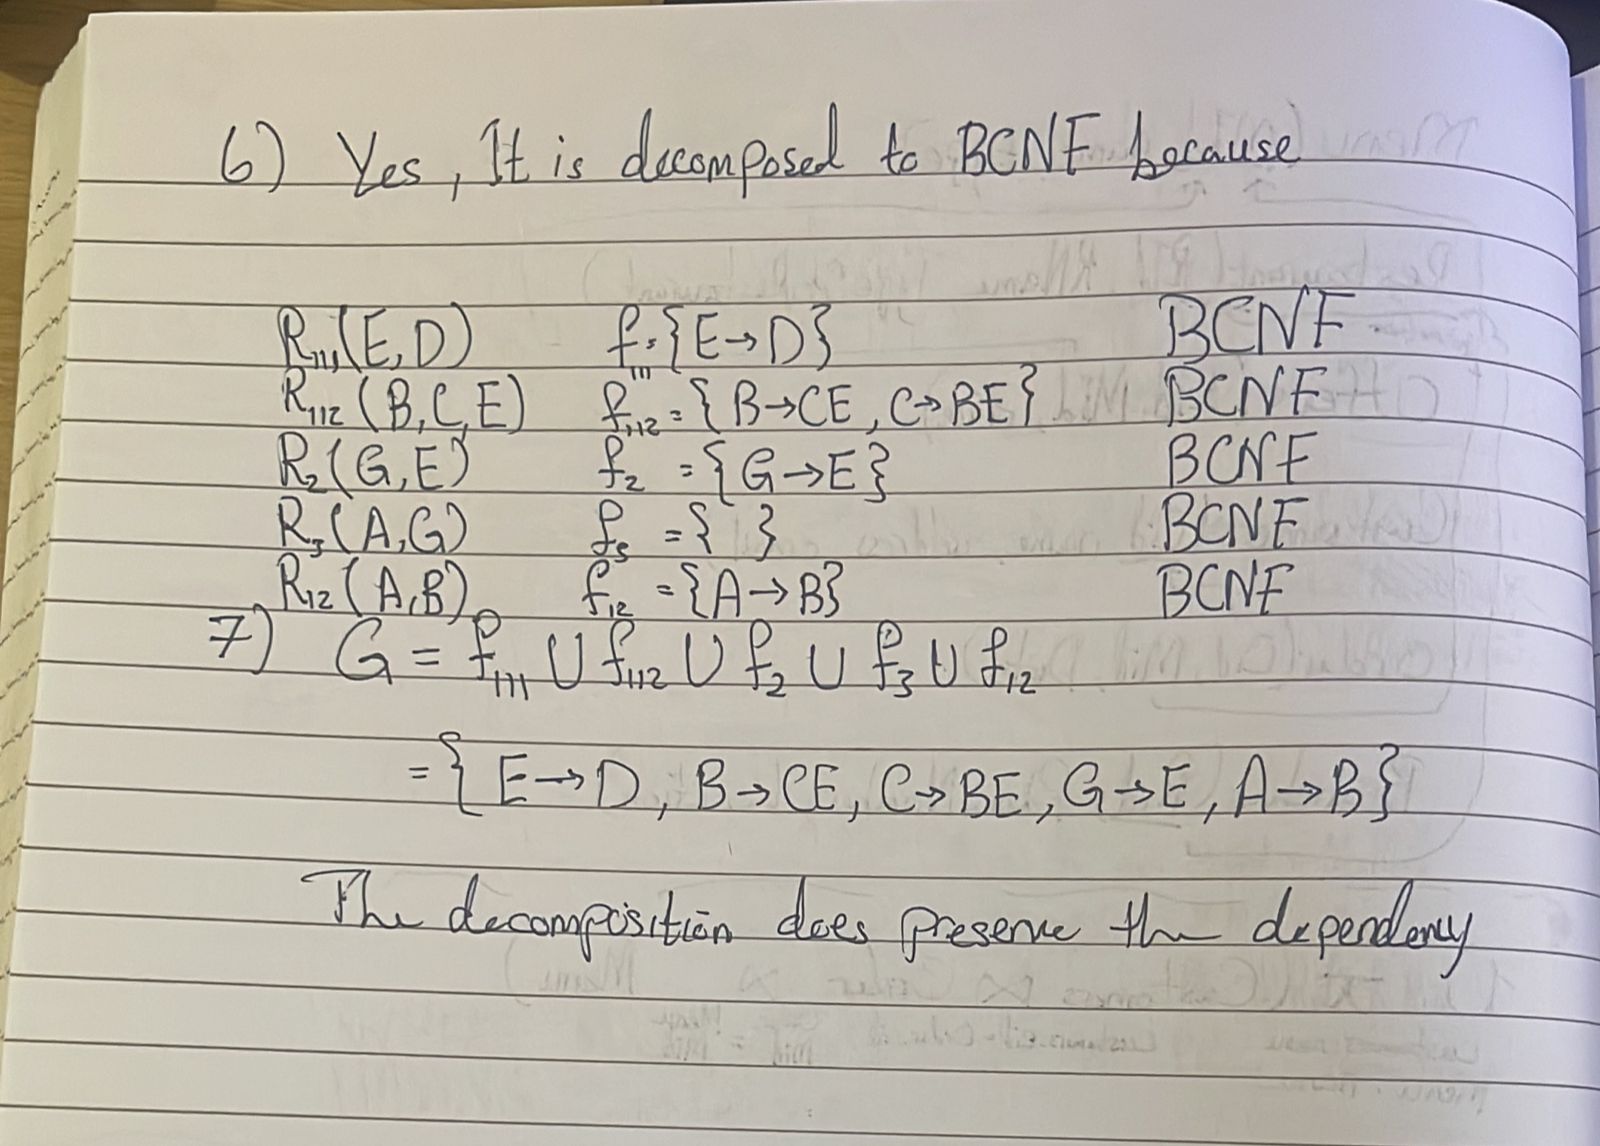 6) Yes, It is decomposed to BCNF because
R₁₁₁(E,D) f₁₁₁={E→D} BCNF
R₁₁₂(B,C,E) f₁₁₂={B→CE, C→BE} BCNF
R₂(G,E) f₂={G→E} BCNF
R₃(A,G) f₃={ } BCNF
R₁₂(A,B) f₁₂={A→B} BCNF
7) G = f₁₁₁ ∪ f₁₁₂ ∪ f₂ ∪ f₃ ∪ f₁₂
={E→D, B→CE, C→BE, G→E, A→B}
The decomposition does preserve the dependency